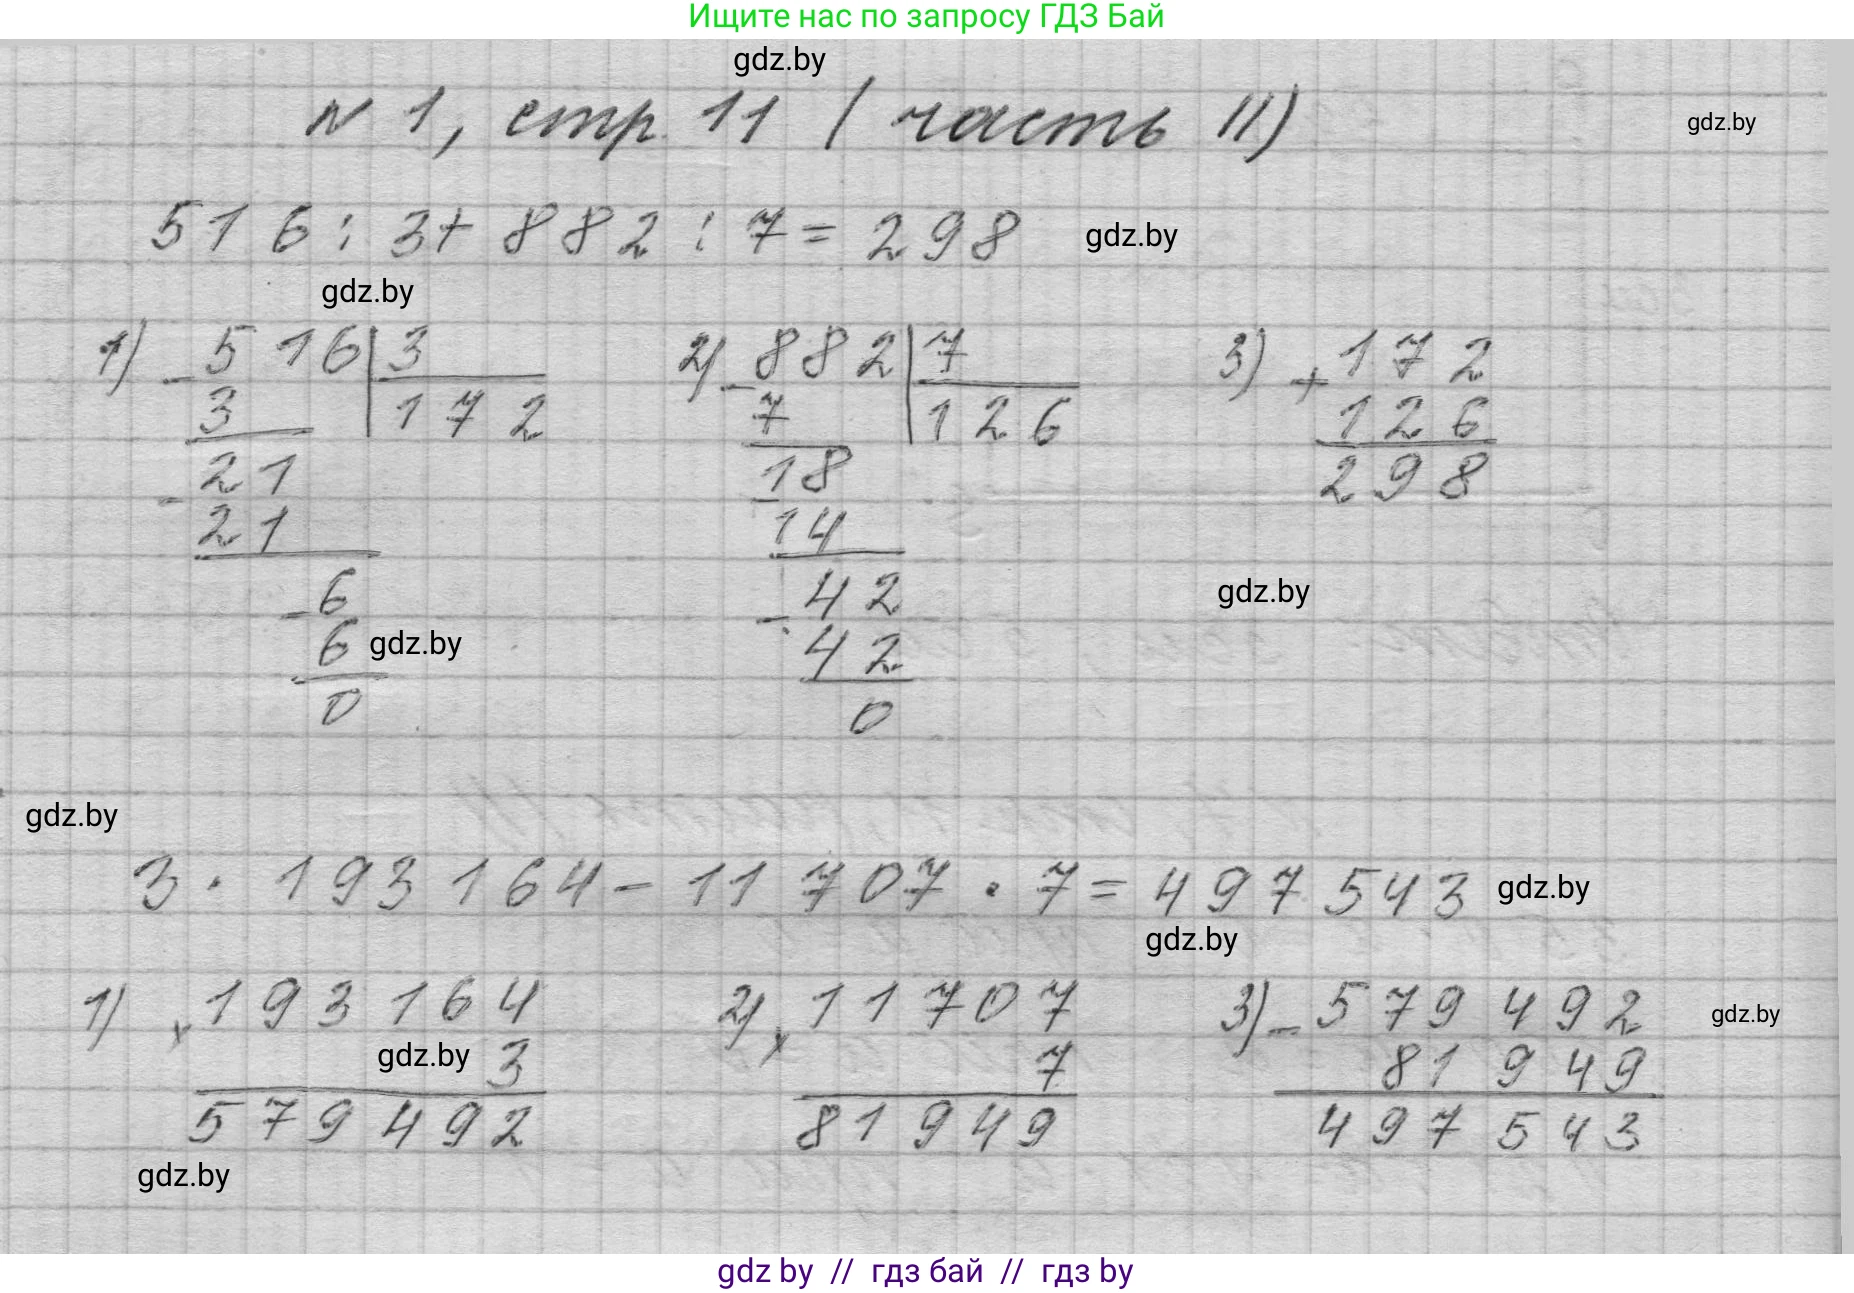 Ищите нас по запросу ГДЗ Бай
gdz.by
№ 1, стр. 11 (часть II)
gdz.by
516 : 3 + 882 : 7 = 298
gdz.by
gdz.by
1) - 516 | 3
3 | 172
- 21
21
- 6
6
0
gdz.by
2) - 882 | 7
7 | 126
- 18
14
- 42
42
0
3) + 172
126
298
gdz.by
gdz.by
3 · 193 164 - 11 707 · 7 = 497 543
gdz.by
gdz.by
1) x 193 164
3
579 492
gdz.by
2) x 11 707
7
81 949
3) - 579 492
81 949
497 543
gdz.by
gdz.by
gdz by // гдз бай // гдз by